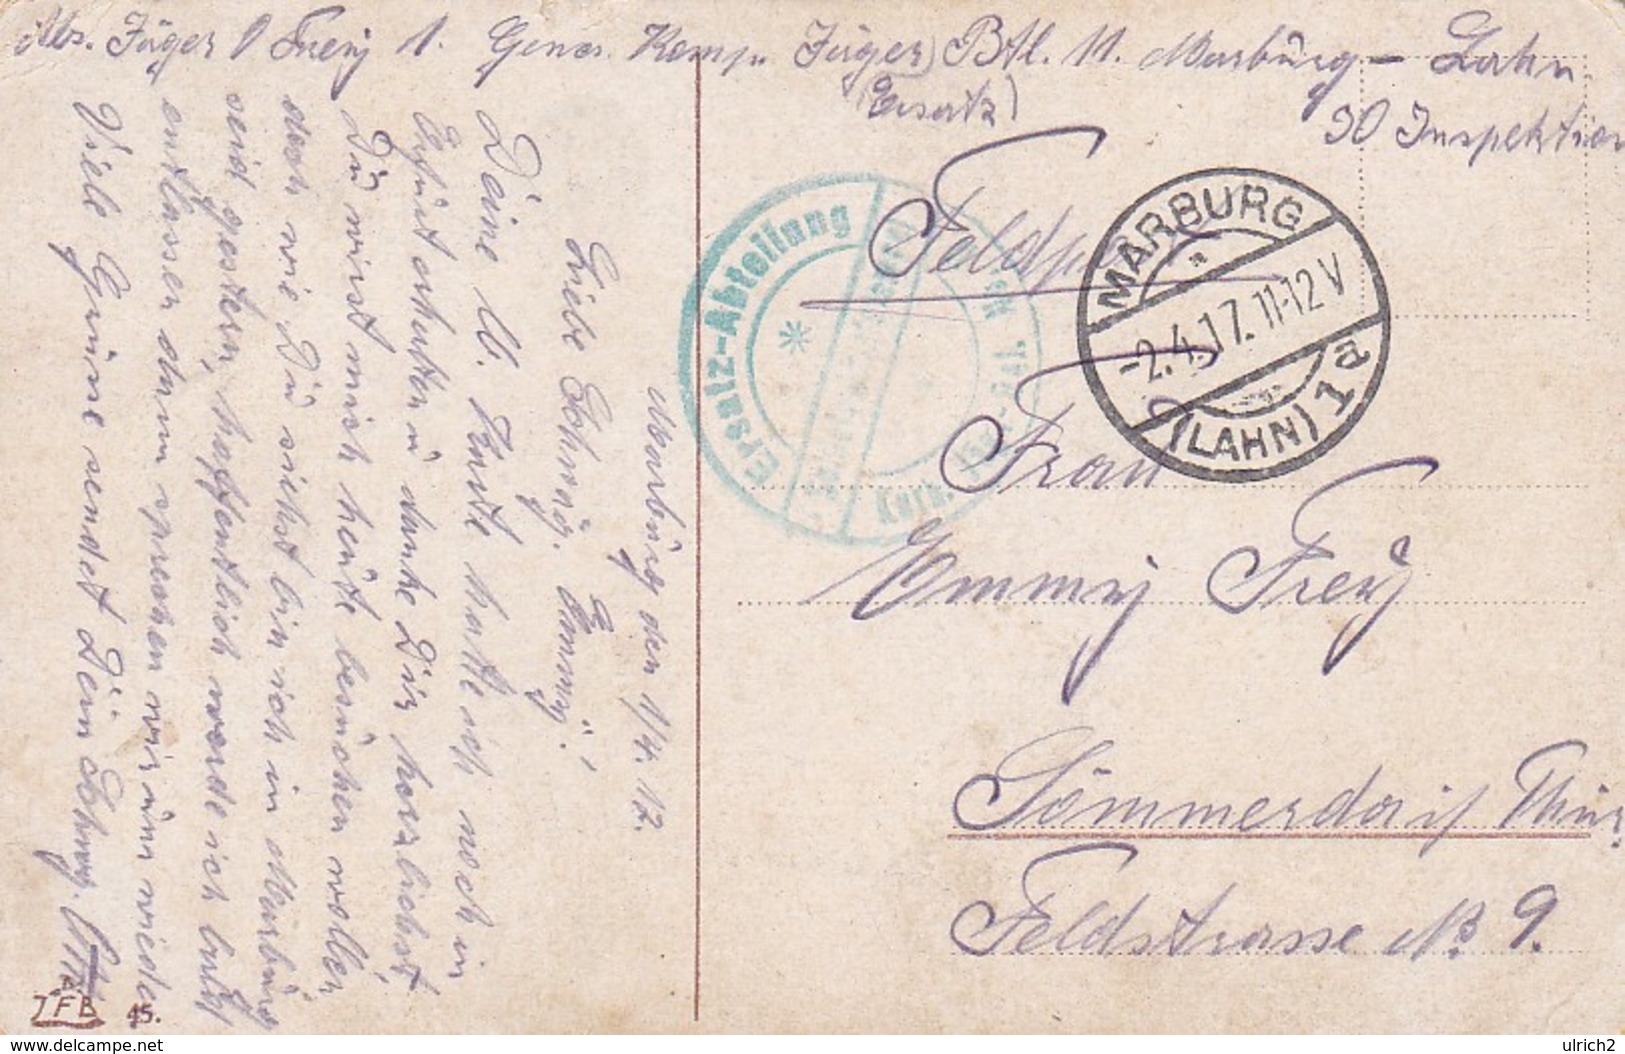 Abs. Jäger O Frey 1. Genes. Komp. Jäger Btl. 11. Marburg – Lahn.
(Ersatz)
30 Inspektion
Feldpost
MARBURG
-2.4.17. 11-12 V
(LAHN) 1a
Ersatz-Abteilung
Frau
Emmy Frey
Sömmerda i/ Thür.
Feldstrasse No 9.
Marburg den 1/4. 17.
Liebe Schwäg. Emmy!
Deine l. Karte hatte ich noch in
Erfurt erhalten u danke Dir herzlichst,
Du wirst mich heute besuchen wollen
doch wie Du siehst bin ich in Marburg
seid gestern, hoffentlich werde ich bald
entlassen dann sprechen wir uns wieder
Viele Grüsse sendet Dein Schwg. Otto
JFB 45.
www.delcampe.net
ulrich2